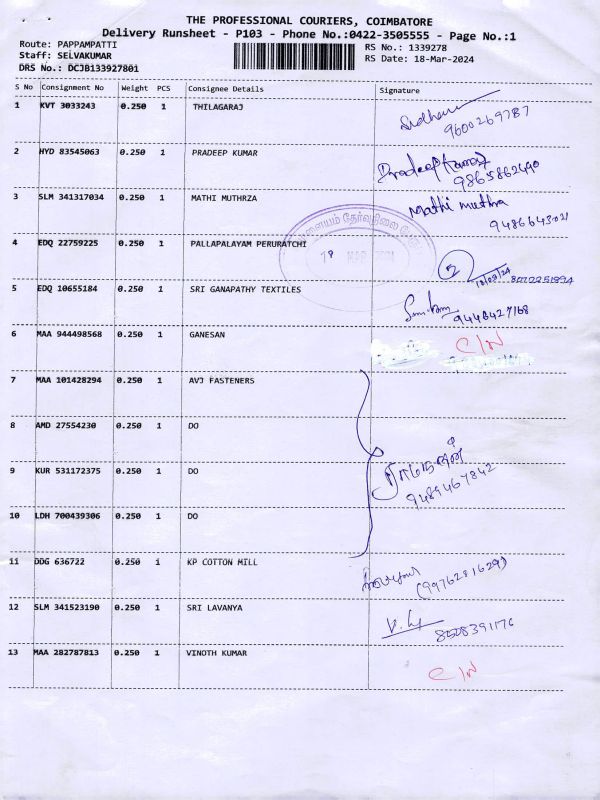 THE PROFESSIONAL COURIERS, COIMBATORE
Delivery Runsheet - P103 - Phone No.:0422-3505555 - Page No.:1
Route: PAPPAMPATTI
Staff: SELVAKUMAR
DRS No.: DCJB133927801
RS No.: 1339278
RS Date: 18-Mar-2024
S No Consignment No Weight PCS Consignee Details Signature
1 KVT 3033243 0.250 1 THILAGARAJ
9600269787
2 HYD 83545063 0.250 1 PRADEEP KUMAR Pradeep Kumar
9865862490
3 SLM 341317034 0.250 1 MATHI MUTHRZA Mathi muthra
9486643021
4 EDQ 22759225 0.250 1 PALLAPALAYAM PERURATCHI
18/03/24
5 EDQ 10655184 0.250 1 SRI GANAPATHY TEXTILES
6 MAA 944498568 0.250 1 GANESAN C/N
7 MAA 101428294 0.250 1 AVJ FASTENERS
8 AMD 27554230 0.250 1 DO
9 KUR 531172375 0.250 1 DO
9489467842
10 LDH 700439306 0.250 1 DO
11 DDG 636722 0.250 1 KP COTTON MILL
(9976281629)
12 SLM 341523190 0.250 1 SRI LAVANYA
8528391176
13 MAA 282787813 0.250 1 VINOTH KUMAR C/N